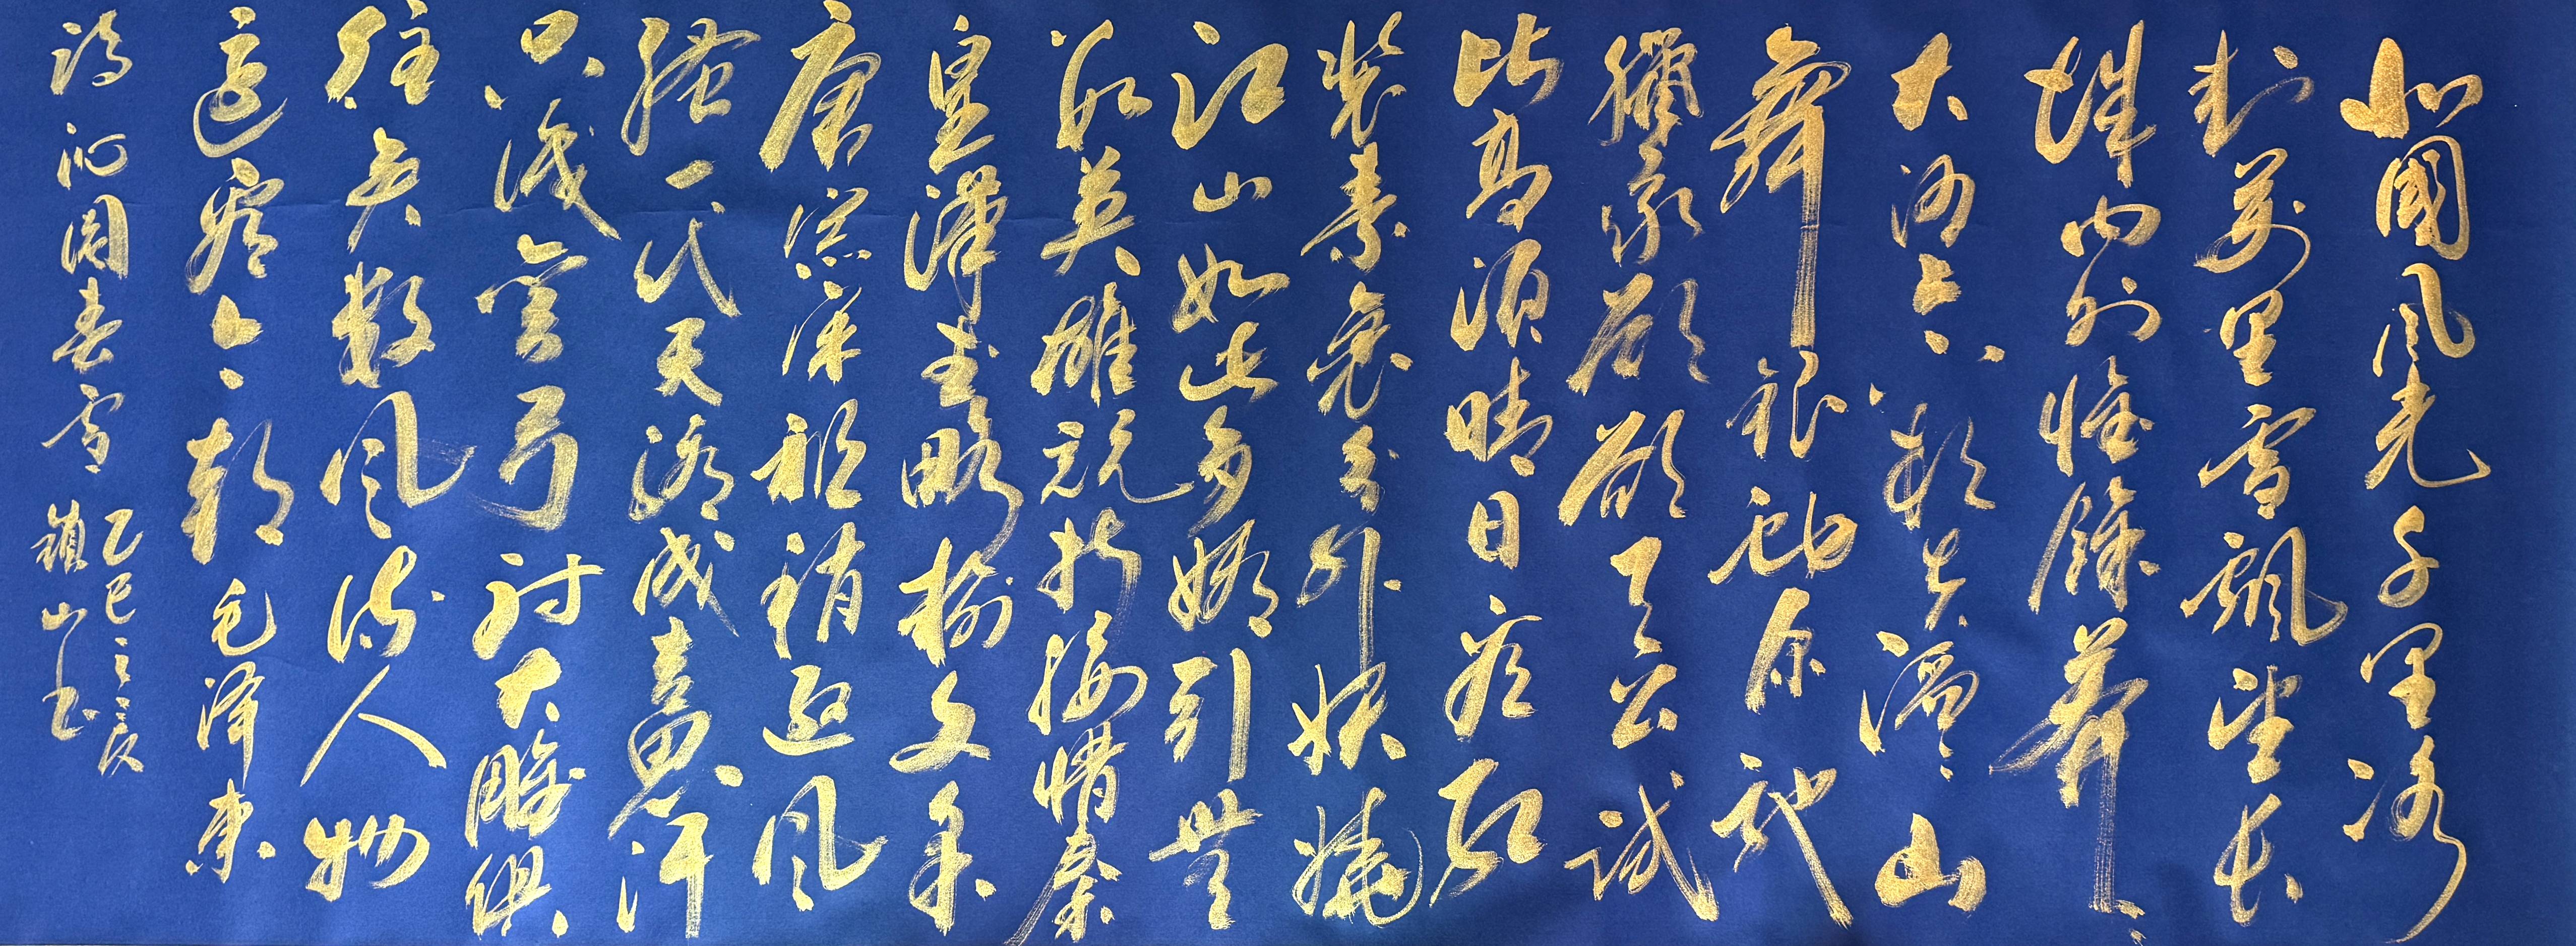 北國風光千里冰
封萬里雪飄望長
城內外惟餘莽〻
大河上下頓失滔〻山
舞銀蛇原馳
蠟象欲欲与天公試
比高須晴日看紅
裝素裹分外妖嬈
江山如此多嬌引無
數英雄競折腰惜秦
皇漢武略輸文采
唐宗宋祖稍遜風
騷一代天驕成吉思汗
只識彎弓射大雕俱
往矣數風流人物
還看今朝毛澤東
詞沁園春雪
乙巳
山书